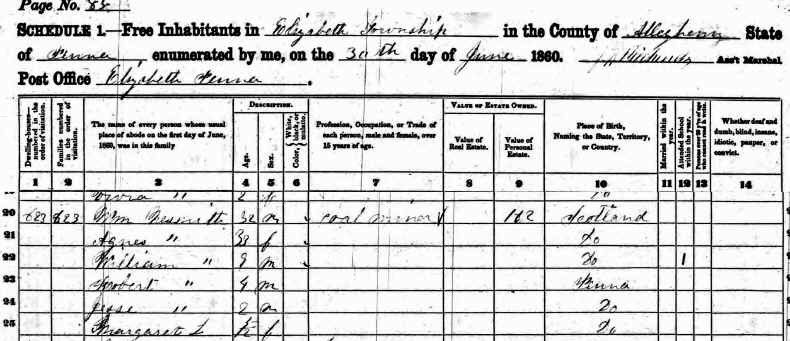 Page No. 88
SCHEDULE 1.—Free Inhabitants in Elizabeth Township in the County of Allegheny State
of Penna enumerated by me, on the 30th day of June 1860. Ass't Marshal
Post Office Elizabeth Penna.
Dwelling-houses—numbered in the order of visitation. Families numbered in the order of visitation. The name of every person whose usual place of abode on the first day of June, 1860, was in this family DESCRIPTION. Age. Sex. Color, White, black, or mulatto. Profession, Occupation, or Trade of each person, male and female, over 15 years of age. VALUE OF ESTATE OWNED. Value of Real Estate. Value of Personal Estate. Place of Birth, Naming the State, Territory, or Country. Married within the year. Attended School within the year. Persons over 20 y'rs of age who cannot read & write. Whether deaf and dumb, blind, insane, idiotic, pauper, or convict.
1 2 3 4 5 6 7 8 9 10 11 12 13 14
2 f "
20 623 623 Wm Nesmith 32 m coal miner 162 Scotland
21 Agnes " 33 f Do
22 William " 9 m Do 1
23 Robert " 4 m Penna
24 Jesse " 2 m Do
25 Margaret L 1/2 f Do